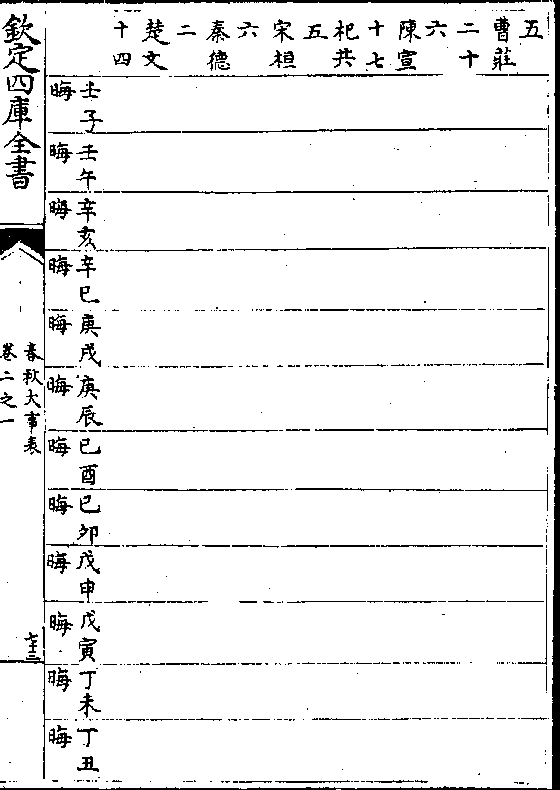 五
曹莊
二十
六
陳宣
十七
杞共
五
宋桓
六
秦德
二
楚文
十四
壬子
晦
壬午
晦
辛亥
晦
辛巳
晦
庚戌
晦
庚辰
晦
已酉
晦
已卯
晦
戊申
晦
戊寅
晦
丁未
晦
丁丑
晦
欽定四庫全書
春秋大事表
卷二之一